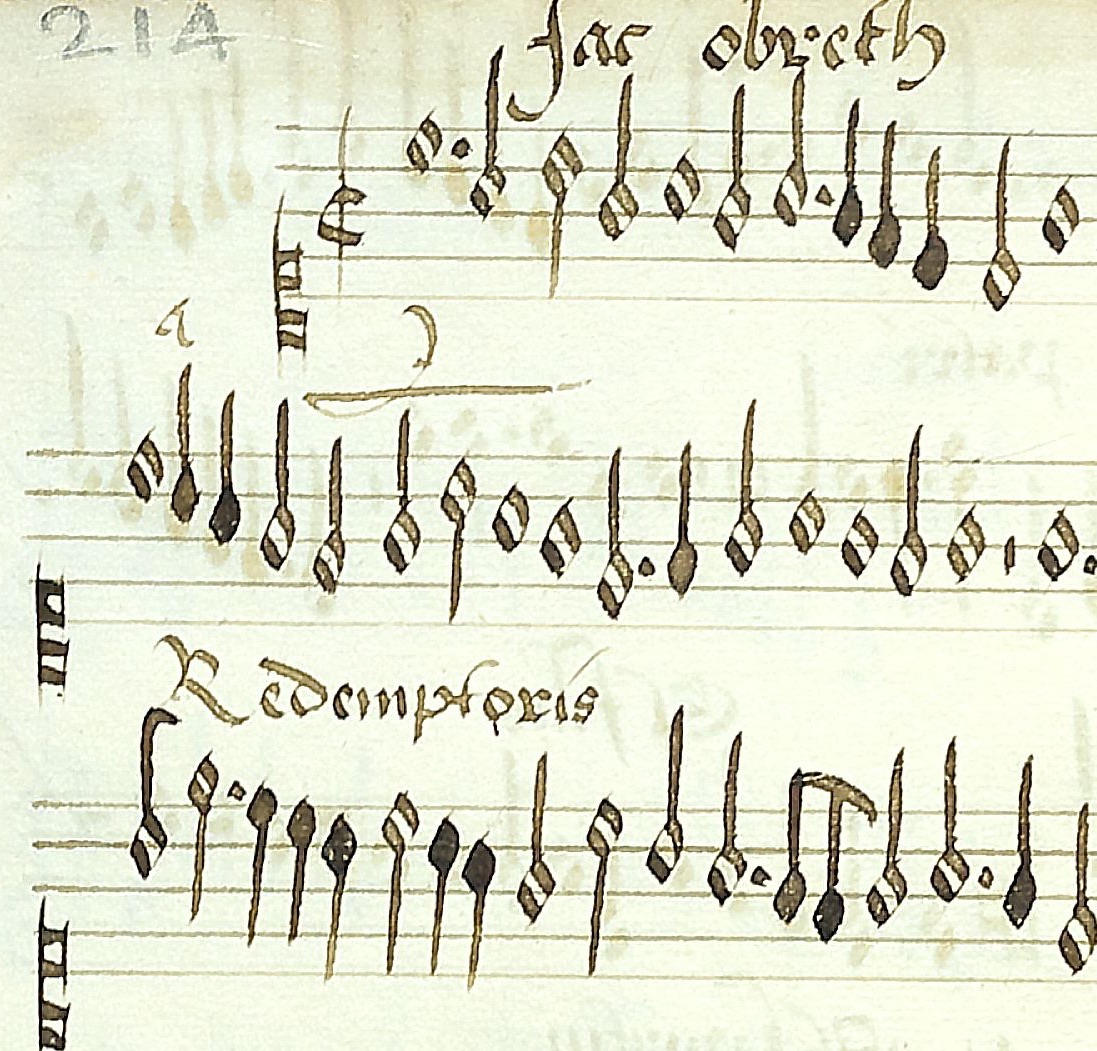 214
Jac obreth
a
Redemptoris